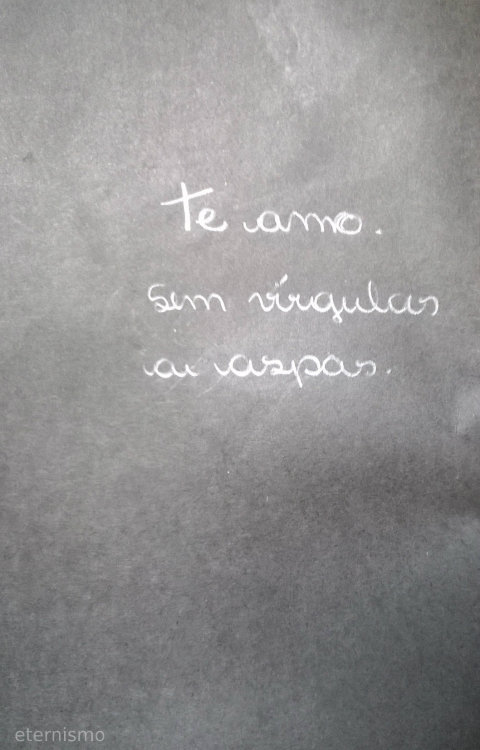 te amo.
sem vírgulas
a aspas.
eternismo